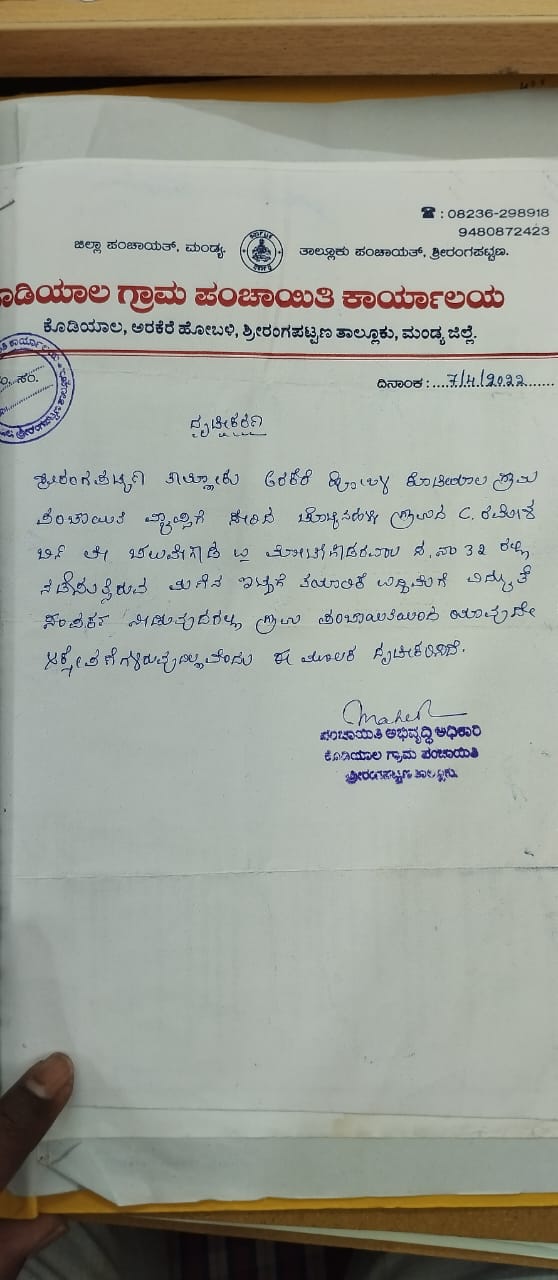 ☎ : 08236-298918
9480872423
ಜಿಲ್ಲಾ ಪಂಚಾಯತ್, ಮಂಡ್ಯ. ತಾಲ್ಲೂಕು ಪಂಚಾಯತ್, ಶ್ರೀರಂಗಪಟ್ಟಣ.
ಕೊಡಿಯಾಲ ಗ್ರಾಮ ಪಂಚಾಯಿತಿ ಕಾರ್ಯಾಲಯ
ಕೊಡಿಯಾಲ, ಅರಕೆರೆ ಹೋಬಳಿ, ಶ್ರೀರಂಗಪಟ್ಟಣ ತಾಲ್ಲೂಕು, ಮಂಡ್ಯ ಜಿಲ್ಲೆ.
ಸಂ. ದಿನಾಂಕ : 7/4/2022
ದೃಢೀಕರಣ
ಶ್ರೀರಂಗಪಟ್ಟಣ ತಾಲ್ಲೂಕು ಅರಕೆರೆ ಹೋಬಳಿ ಕೊಡಿಯಾಲ ಗ್ರಾಮ
ಪಂಚಾಯಿತಿ ವ್ಯಾಪ್ತಿಗೆ ಸೇರಿದ ಗ್ರಾಮದ C. ರಮೇಶ
ಬಿನ್ ಲೇ ನಂ 32 ರಲ್ಲಿ
ನಡೆಸುತ್ತಿರುವ ಇಟ್ಟಿಗೆ ತಯಾರಿಕೆ ಉದ್ದಿಮೆಗೆ ವಿದ್ಯುತ್
ಸಂಪರ್ಕ ನೀಡುವುದರಲ್ಲಿ ಗ್ರಾಮ ಪಂಚಾಯಿತಿಯಿಂದ ಯಾವುದೇ
ಆಕ್ಷೇಪಣೆಗಳಿರುವುದಿಲ್ಲವೆಂದು ಈ ಮೂಲಕ ದೃಢೀಕರಿಸಿದೆ.
ಪಂಚಾಯಿತಿ ಅಭಿವೃದ್ಧಿ ಅಧಿಕಾರಿ
ಕೊಡಿಯಾಲ ಗ್ರಾಮ ಪಂಚಾಯಿತಿ
ಶ್ರೀರಂಗಪಟ್ಟಣ ತಾಲ್ಲೂಕು.